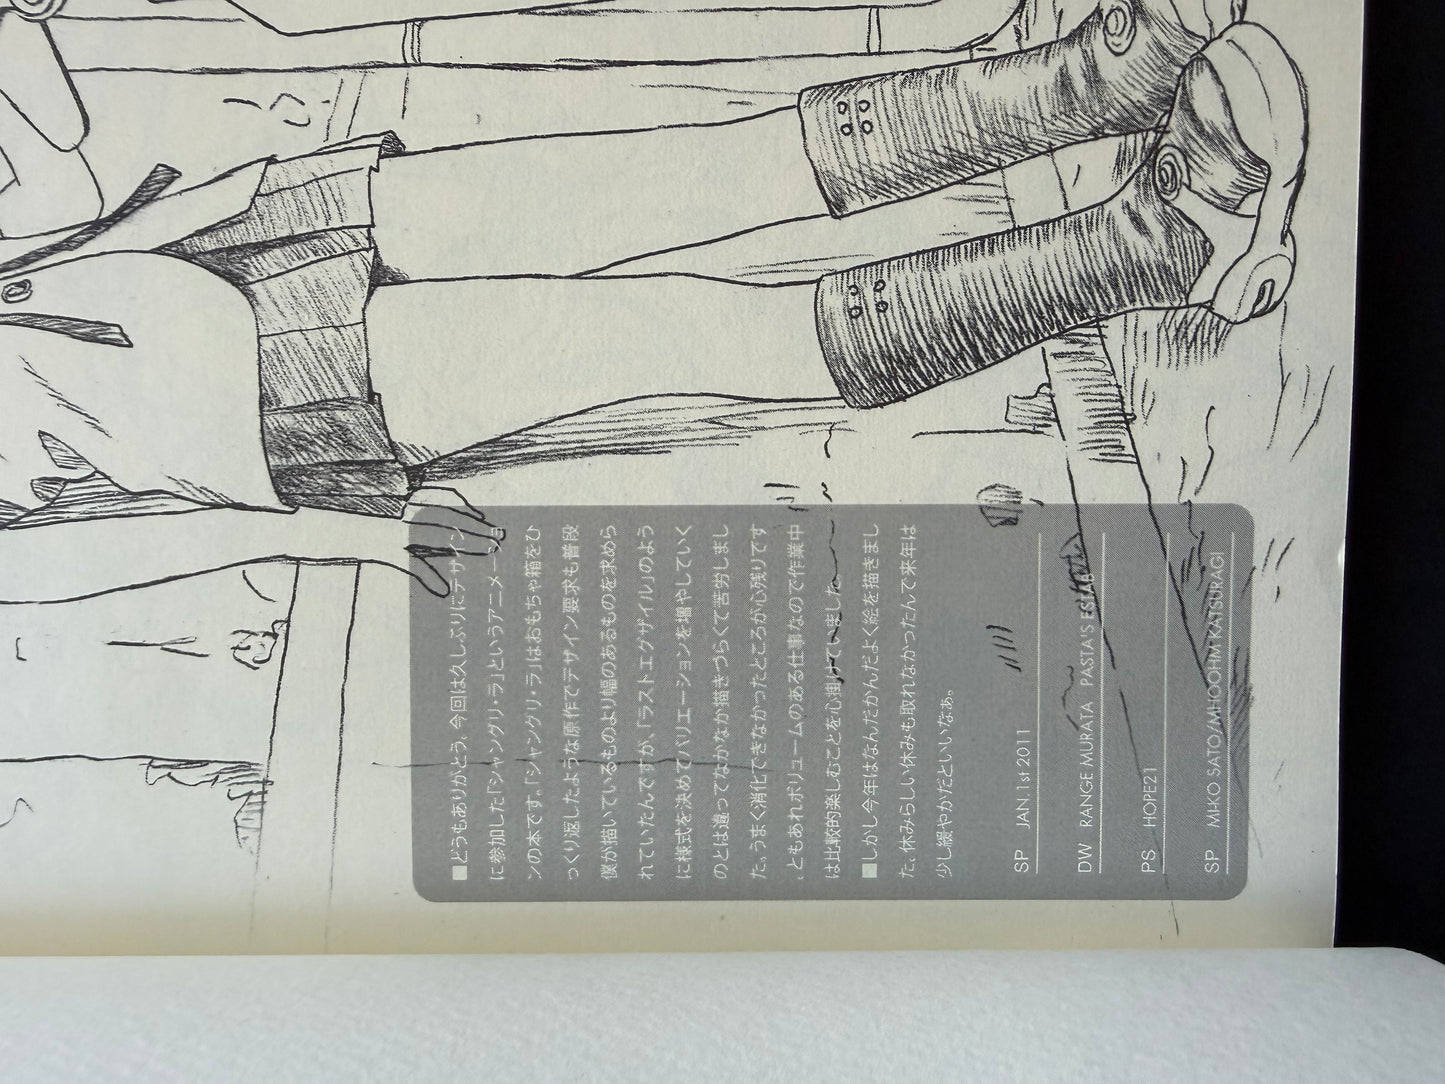 ■どうもありがとう。今回は久しぶりにデザイン
に参加した「シャングリ・ラ」というアニメーショ
ンの本です。「シャングリ・ラ」はおもちゃ箱をひ
っくり返したような原作でデザイン要求も普段
僕が描いているものより幅のあるものを求めら
れていたんですが、「ラストエグザイル」のよう
に様式を決めてバリエーションを増やしていく
のとは違ってなかなか描きづらくて苦労しまし
た。うまく消化できなかったところが心残りです
。ともあれボリュームのある仕事なので作業中
は比較的楽しむことを心掛けていました。
■しかし今年はなんだかんだよく絵を描きまし
た。休みらしい休みも取れなかったんで来年は
少し緩やかだといいなぁ。
SP JAN.1st 2011
DW RANGE MURATA PASTA'S ESTAB
PS HOPE21
SP MI-KO SATO/MHOOHM KATSURAGI